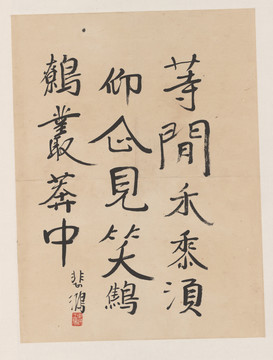 等間禾黍須
仰企見笑鷦
鷯叢莽中
悲鴻